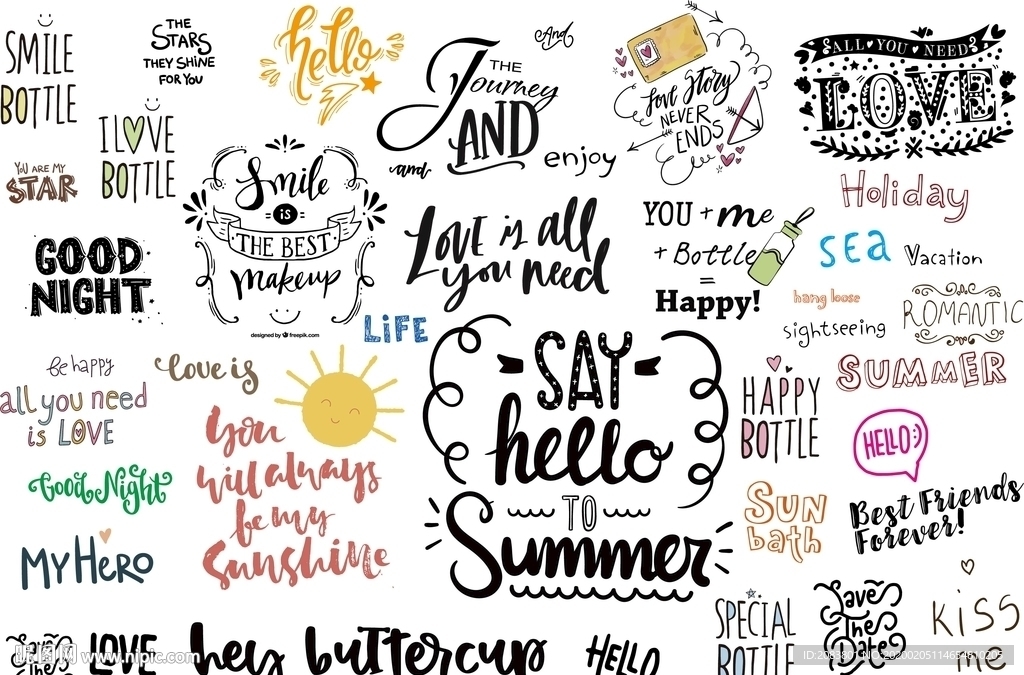 SMILE
BOTTLE
THE
STARS
THEY SHINE
FOR YOU
hello
And
THE
Journey
AND
and
enjoy
Love Story
NEVER
ENDS
ALL YOU NEED
LOVE
I LOVE
BOTTLE
YOU ARE MY
STAR
Smile
is
THE BEST
makeup
designed by freepik.com
GOOD
NIGHT
LiFE
Love is all
you need
YOU + me
+ Bottle
=
Happy!
Holiday
SEA
Vacation
hang loose
sightseeing
ROMANTIC
SUMMER
be happy
all you need
is LOVE
love is
You
will always
be my
Sunshine
SAY
hello
TO
Summer
HAPPY
BOTTLE
HELLO:)
Good Night
MY HERO
SUN
bath
Best Friends
Forever!
SPECIAL
BOTTLE
Save
The
Date
KiSS
me
Save
The
LOVE
hey buttercup
HELLO
昵图网 www.nipic.com
ID:2083801 NO:20200205114654810205